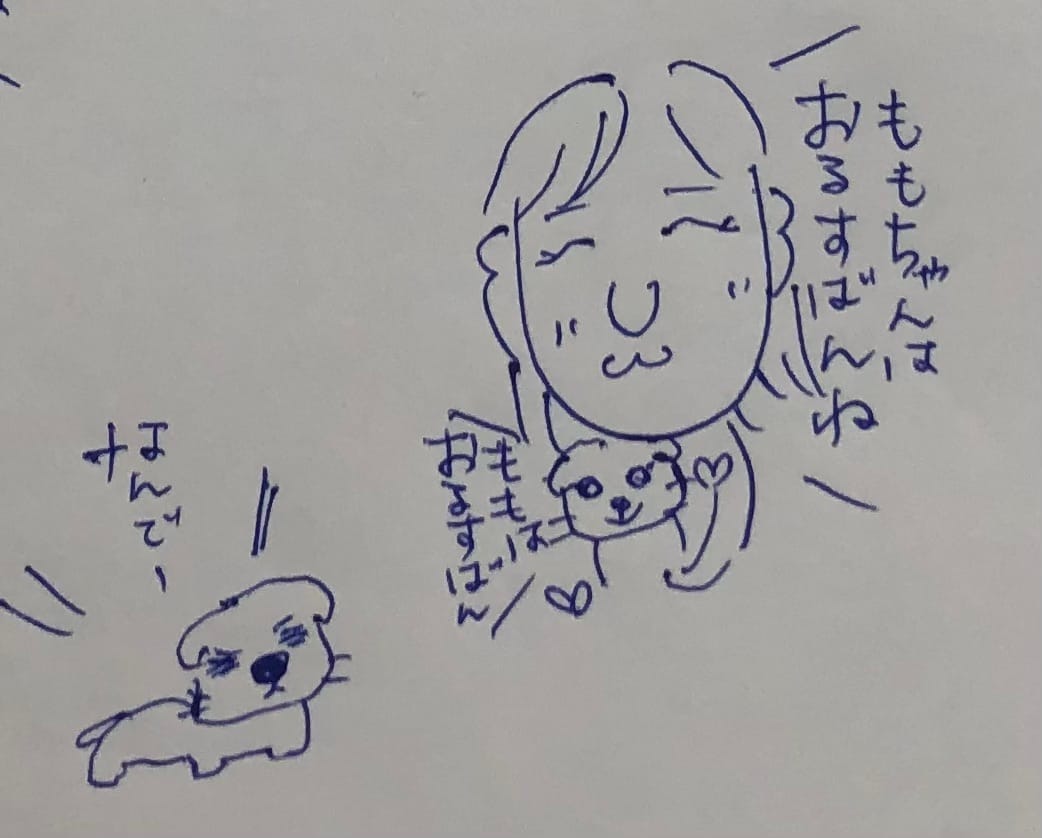 ももちゃんは
おるすばんね
ももは
おるすばん
なんでー